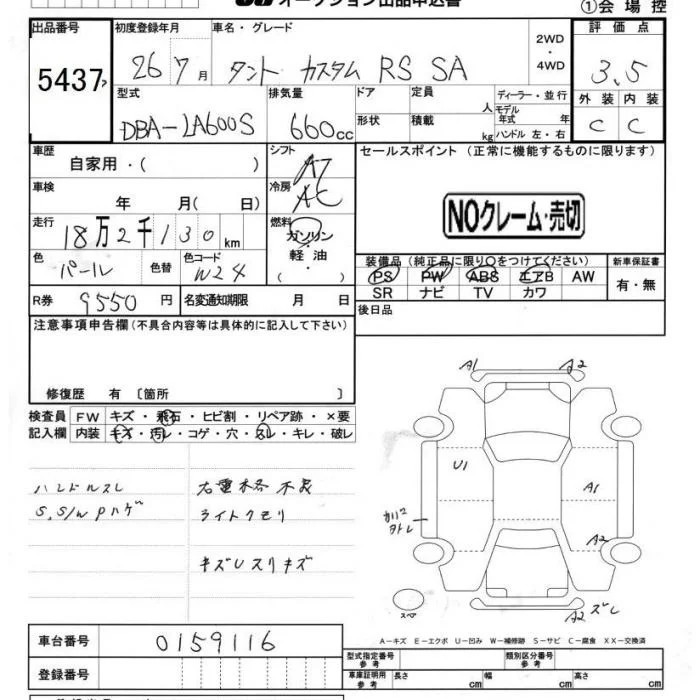 オークション出品申込書
①会場控
出品番号 初度登録年月 車名・グレード 2WD ・ 4WD 評価点
5437 26 7月 タント カスタム RS SA 3.5
型式 排気量 ドア 定員 人 ディーラー・並行 外装 内装
DBA-LA600S 660cc 形状 積載 kg モデル年式 年 ハンドル 左・右 C C
車歴 シフト セールスポイント (正常に機能するものに限ります)
自家用・( ) AT
車検 冷房
年 月( 日) AC
NOクレーム・売切
走行 燃料
18万2千130km ガソリン
軽油
装備品(純正品に限り○をつけてください) 新車保証書
色 色替 色コード
パール W24
PS PW ABS エアB AW 有・無
SR ナビ TV カワ
R券 9550円 名変通知期限 月 日
後日品
注意事項申告欄(不具合内容等は具体的に記入して下さい)
修復歴 有 〔箇所 〕
検査員 FW キズ・飛石・ヒビ割・リペア跡・×要
記入欄 内装 キズ・汚レ・コゲ・穴・スレ・キレ・破レ
A1 A2
ハンドルスレ
S,S/W Pハゲ
ライトクモリ
キズUスリキズ
U1 A1
A2
スペア
A2 ズレ
A-キズ E-エクボ U-凹み W-補修跡 S-サビ C-腐食 XX-交換済
車台番号 0159116
登録番号
型式指定番号 参考 類別区分番号 参考
車庫証明用 参考 長さ cm 幅 cm 高さ cm